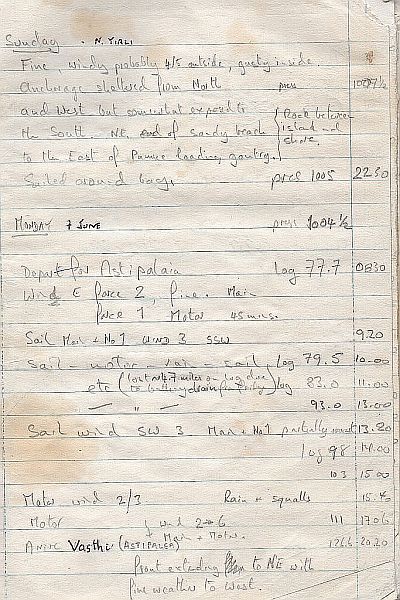 Sunday. N. YIALI
Fine, windy probably 4/5 outside, gusty inside
Anchorage sheltered from North press 1007½
and West but somewhat exposed to
the South. NE. end of sandy beach { Rock between island and shore.
to the East of Pumice loading gantry.
Sailed around bay. press 1005 2230
MONDAY 7 JUNE press 1004½
Depart for Astipalaia Log 77.7 0830
Wind E force 2, fine. Main
force 1 Motor 45 mins.
Sail Main + No 1 WIND 3 SSW 9.20
Sail - motor - rain - sail, log 79.5 10.00
etc (lost 4.7 miles on Log due to battery drain) log 83.0 11.00
" 93.0 13.00
Sail wind SW 3 Main + No 1 partially 13.20
log 98 14.00
103 15.00
Motor wind 2/3 Rain + squalls
Motor } wind 2 → 6 111 1706
Main + Motor.
Arrive Vasthi (ASTIPALEA) 126.6 20.20
Front extending to NE with
fine weather to West.